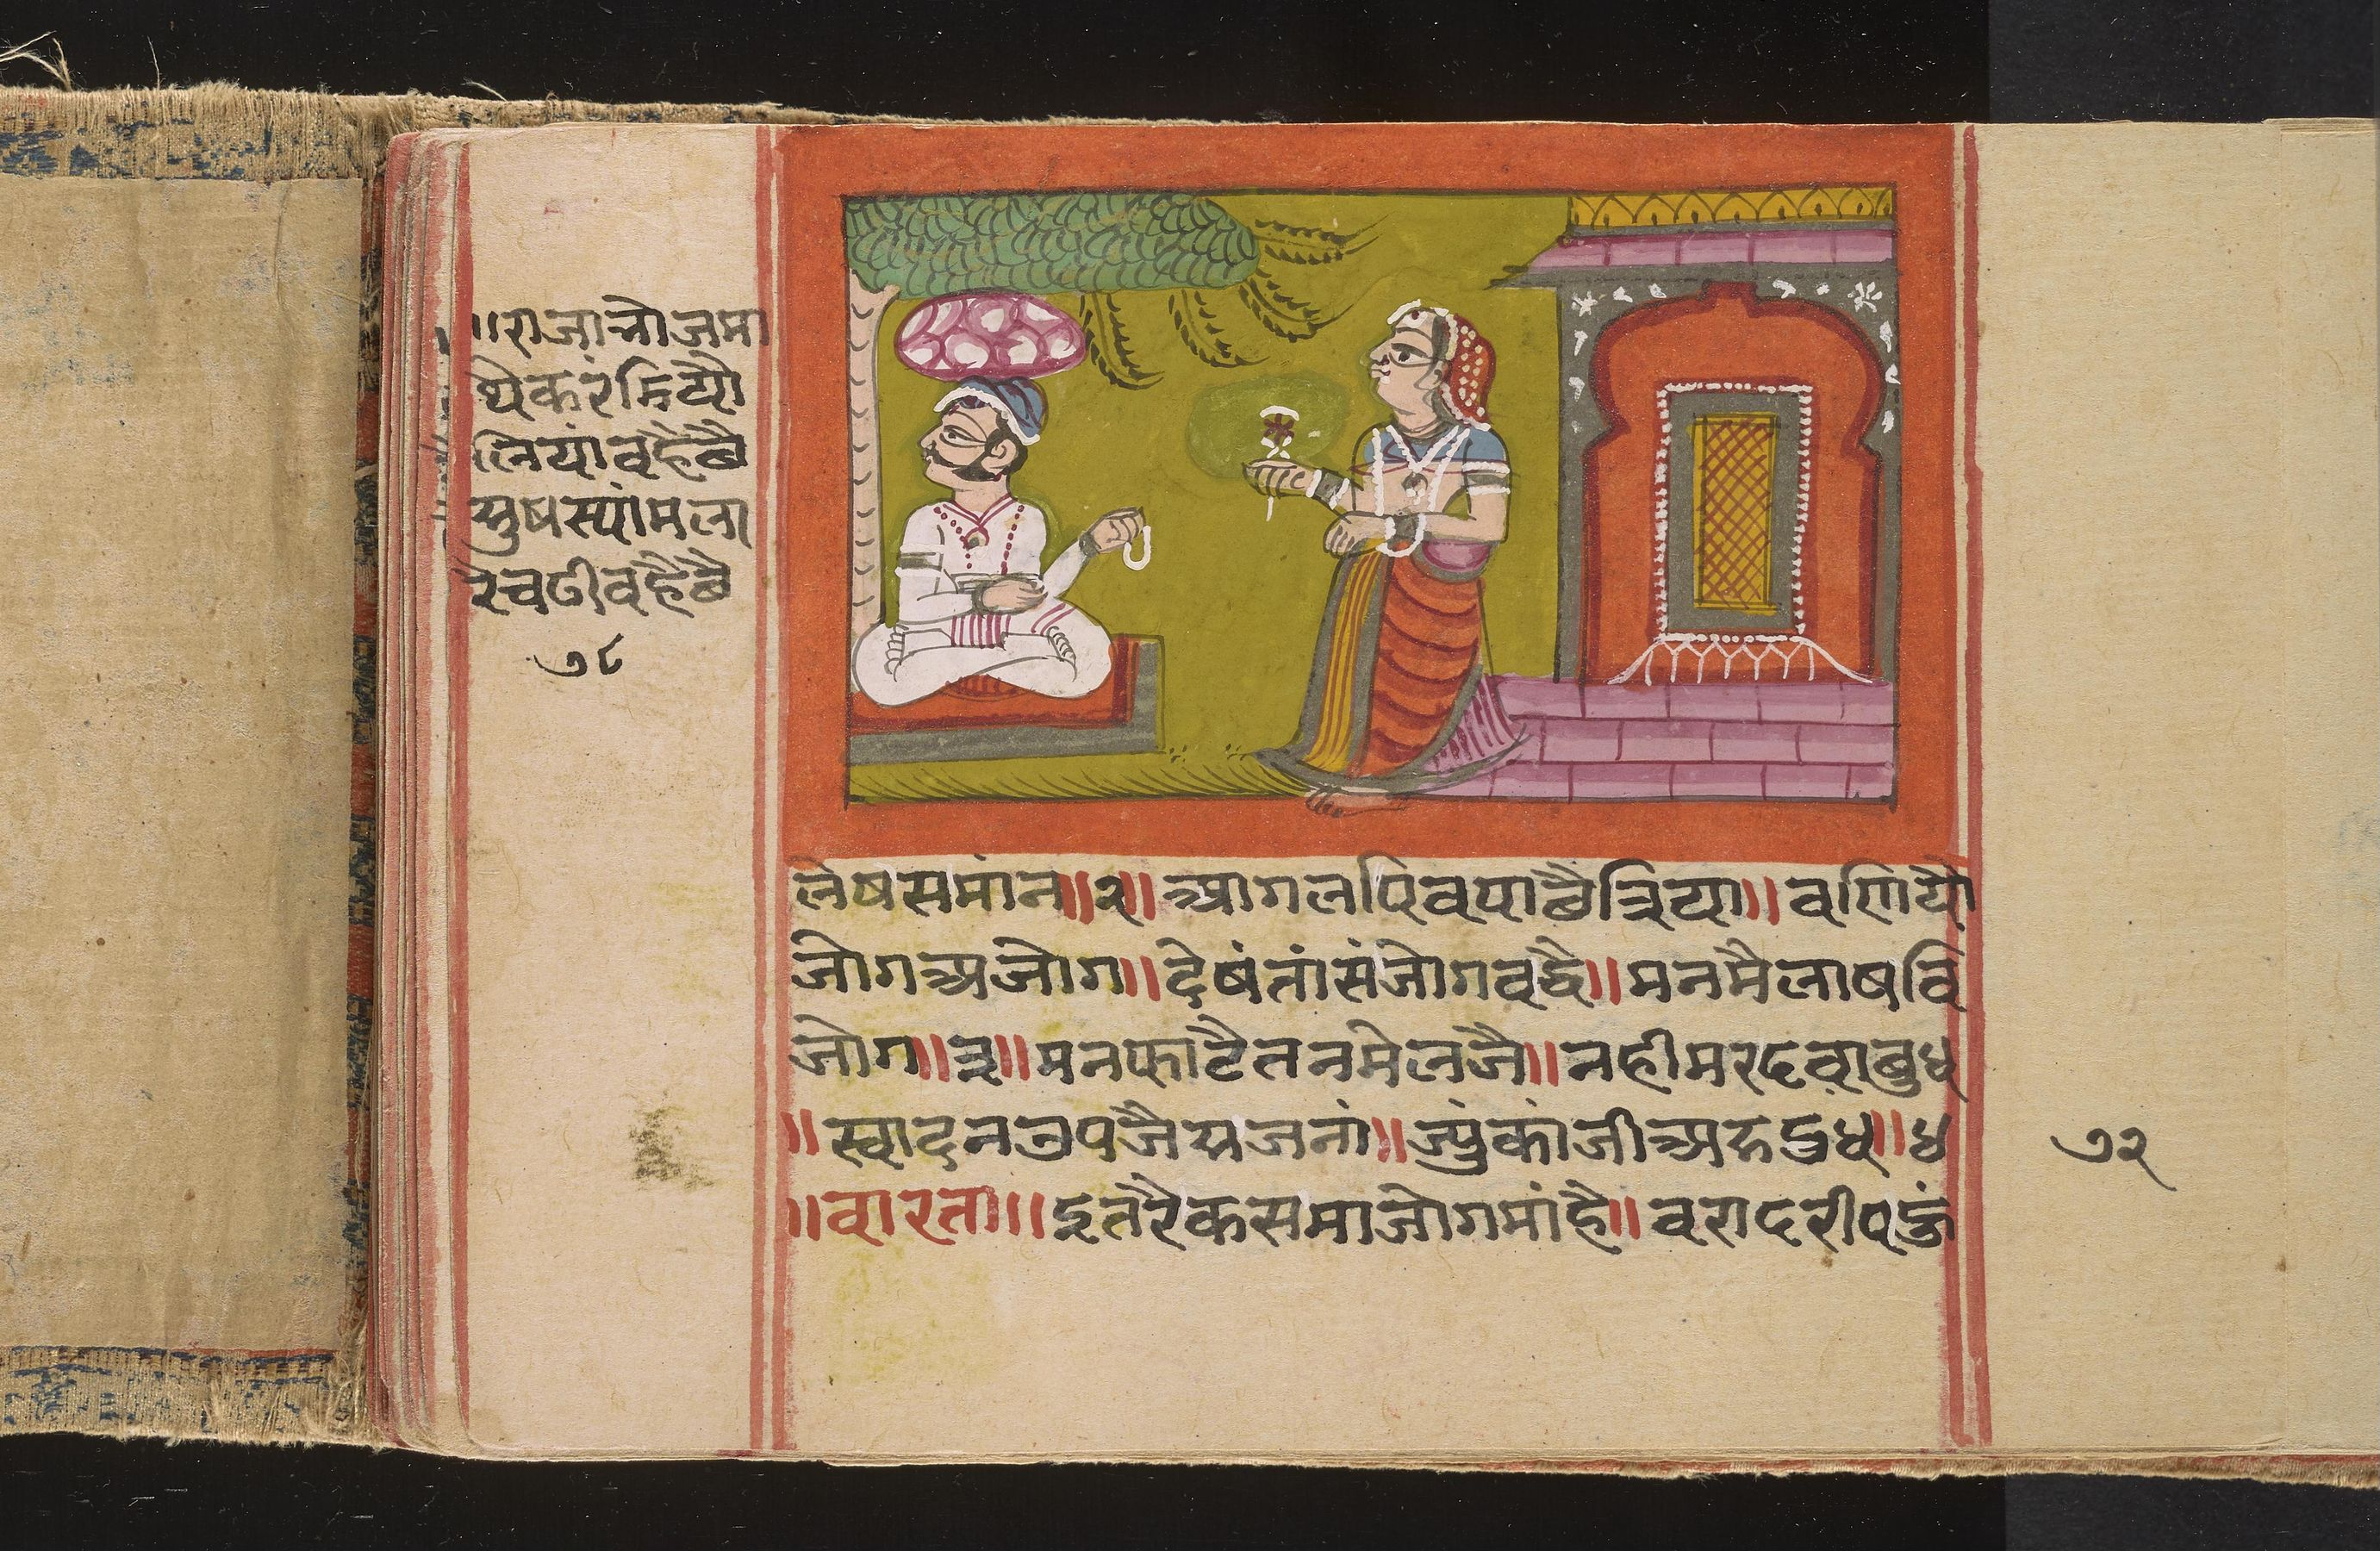 ॥राजा नोजमा
थेकर मियौ
लियां वहै बै
सुष स्यांम ला
रच ढी वहै बै
७८
लेष समांन॥२॥ आगलपिव पाबै त्रिया॥ वणियौ
जोग अजोग॥ देषंतां संजोग वहै॥ मनमै लाष वि
जोग॥३॥ मन फाटै तन मेलजै॥ नही मरद वा बुध
॥ स्वाद न उपजै स जनां॥ ज्युं कांजी अरु दुध॥४
॥वारता॥ इतरै क समाजोग मां है॥ वरादरी
७२